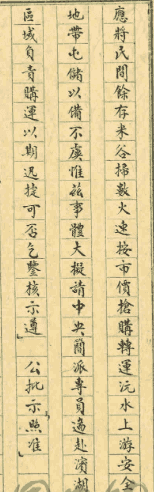 應將民間餘存米谷掃數火速按市價搶購轉運沅水上游安全
地帶屯儲以備不虞惟茲事體大擬請中央簡派專員遄赴濱湖
區域負責購運以期迅捷可否乞鑒核示遵」　公批示「照准」